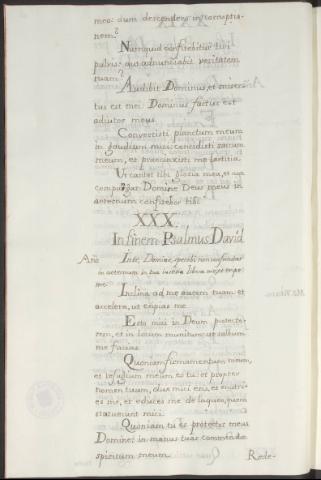 meo: dum descendero in corruptio-
nem?
Numquid confitebitur tibi
pulvis: aut adnunciabit veritatem
tuam?
Audibit Dominus, et misser-
tus est mei: Dominus factus est
adiutor meus.
Convertisti planctum meum
in gaudium mici: concidisti sacum
meum, et precinxisti me lætitia.
Ut cantet tibi gloria mea, et non
compungar: Domine Deus meus in
æternum confitebor tibi.
XXX.
In finem Psalmus David
In te, Domine, speravi non confundar
in æternum: in tua
me:
Inclina ad me aurem tuam: et
accelera, ut eripias me.
Esto mici in Deum protecto-
rem, et in locum munitum: ut salbum
me facias.
Quoniam firmamentum meum,
et refugium meum es tu: et propter
nomen tuum, dux mici eris, et enutri-
es me, et educes me de laqueo, quem
statuerunt mici.
Quoniam tu es protector meus
Domine: in manus tuas commendo
spiritum meum. Rede-